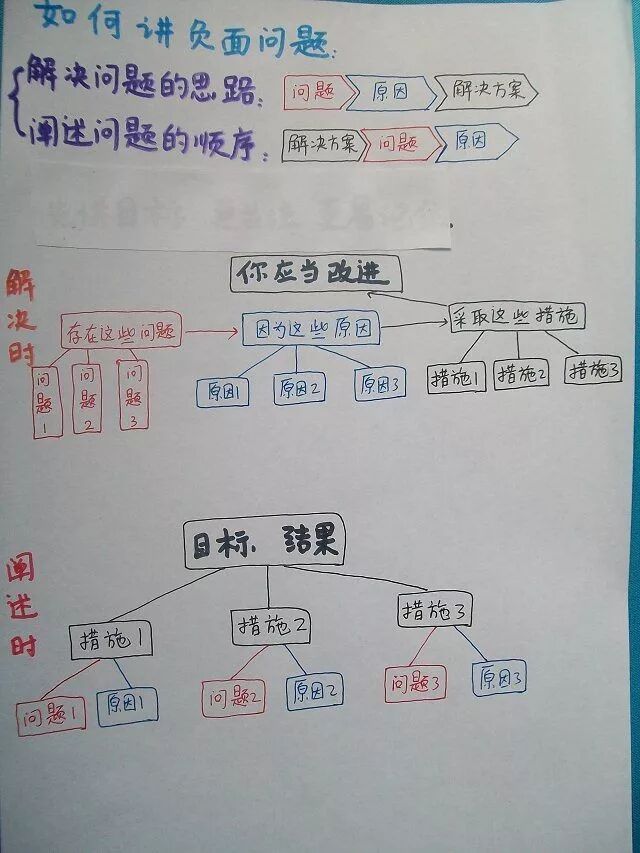 如何讲负面问题:
解决问题的思路: 问题 原因 解决方案
阐述问题的顺序: 解决方案 问题 原因
你应当改进
解决时
存在这些问题 因为这些原因 采取这些措施
问题1 问题2 问题3 原因1 原因2 原因3 措施1 措施2 措施3
目标、结果
阐述时
措施1 措施2 措施3
问题1 原因1 问题2 原因2 问题3 原因3